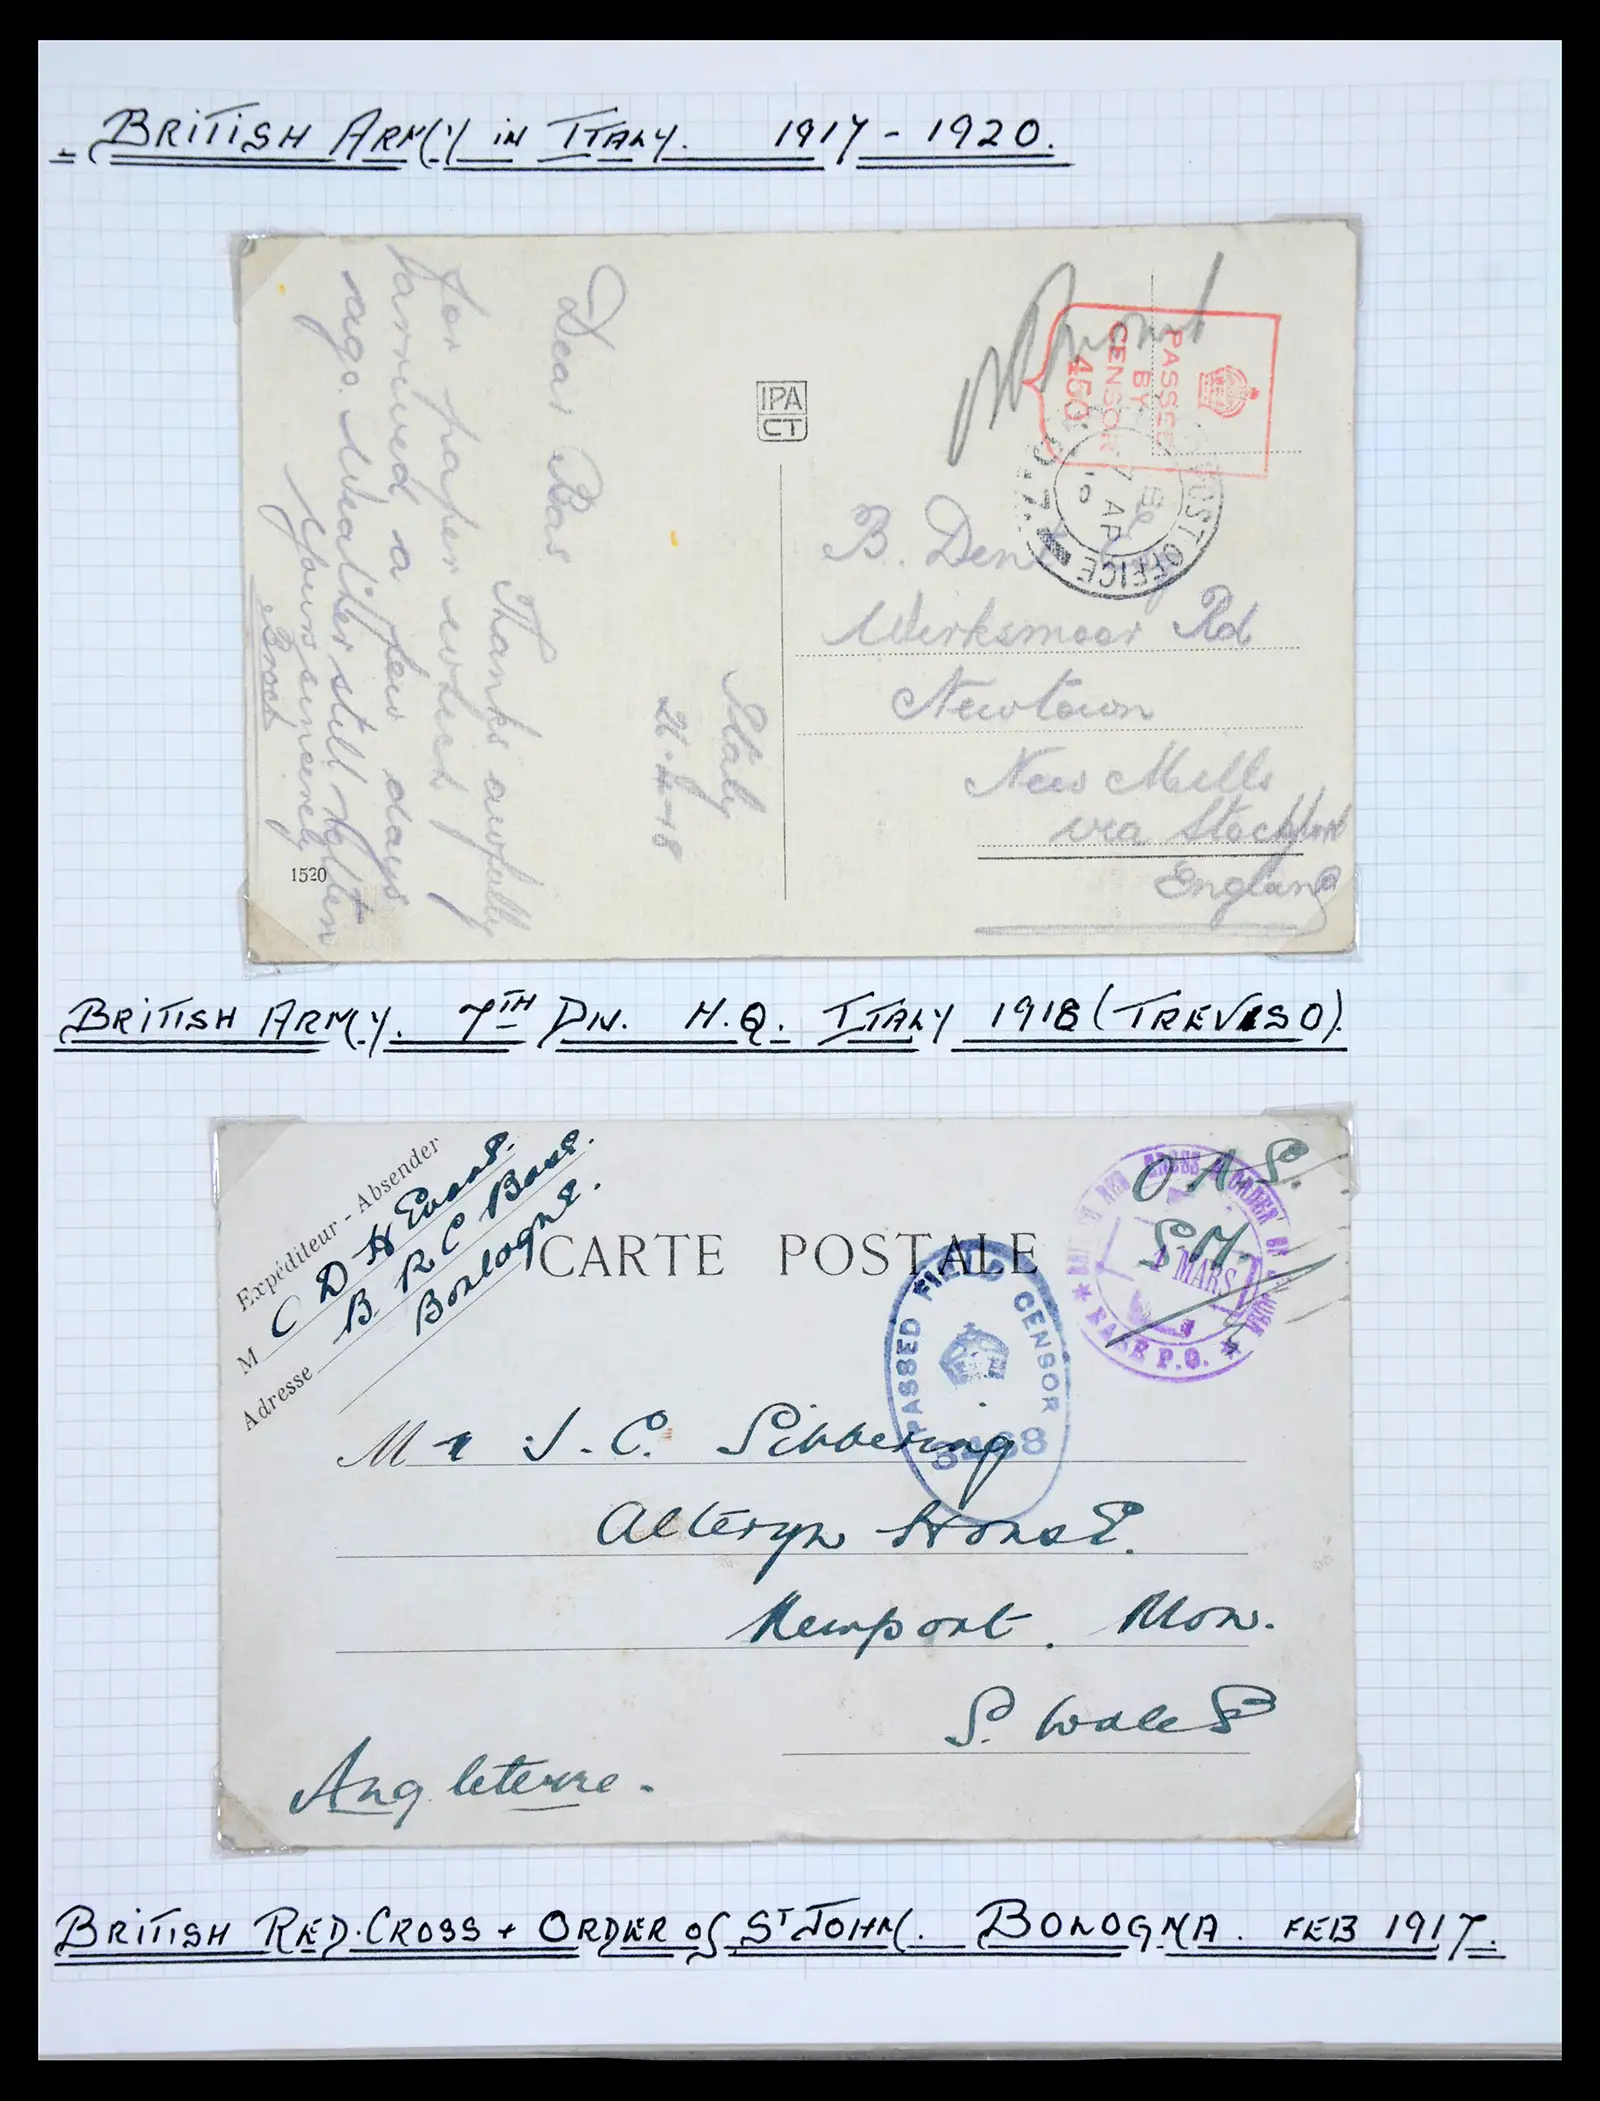 BRITISH ARMY IN ITALY. 1917 - 1920.
Italy
21-4-18
Dear Bas
Thanks awfully
for paper which
arrived a few days
ago. Weather still rotten
Yours sincerely
1520
IPA
CT
PASSED
BY
CENSOR
450
POST OFFICE
AP
D.7.
B. Dent Esq
Werksmoor Rd
Newtown
New Mills
via Stockport
England
BRITISH ARMY. 7TH DIV. H.Q. ITALY 1918 (TREVISO).
Expéditeur - Absender
M C D H Evans.
Adresse B R C Base.
Boulogne.
CARTE POSTALE
O.A.S.
S.M.
RED CROSS & ORDER
1 MARS
BASE P.O.
PASSED FIELD CENSOR
3468
Mr J. C. Sibbering
Alteryn House.
Newport. Mon.
S. Wales
Angleterre.
BRITISH RED CROSS + ORDER OF ST JOHN. BOLOGNA. FEB 1917.